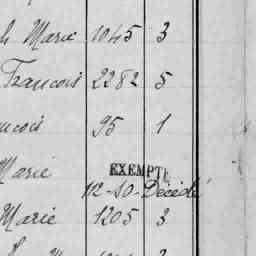 Marie 1045 3
Francois 2282 5
ncois 95 1
Marie EXEMPTÉ
12-80-Décédé
Marie 1205 3